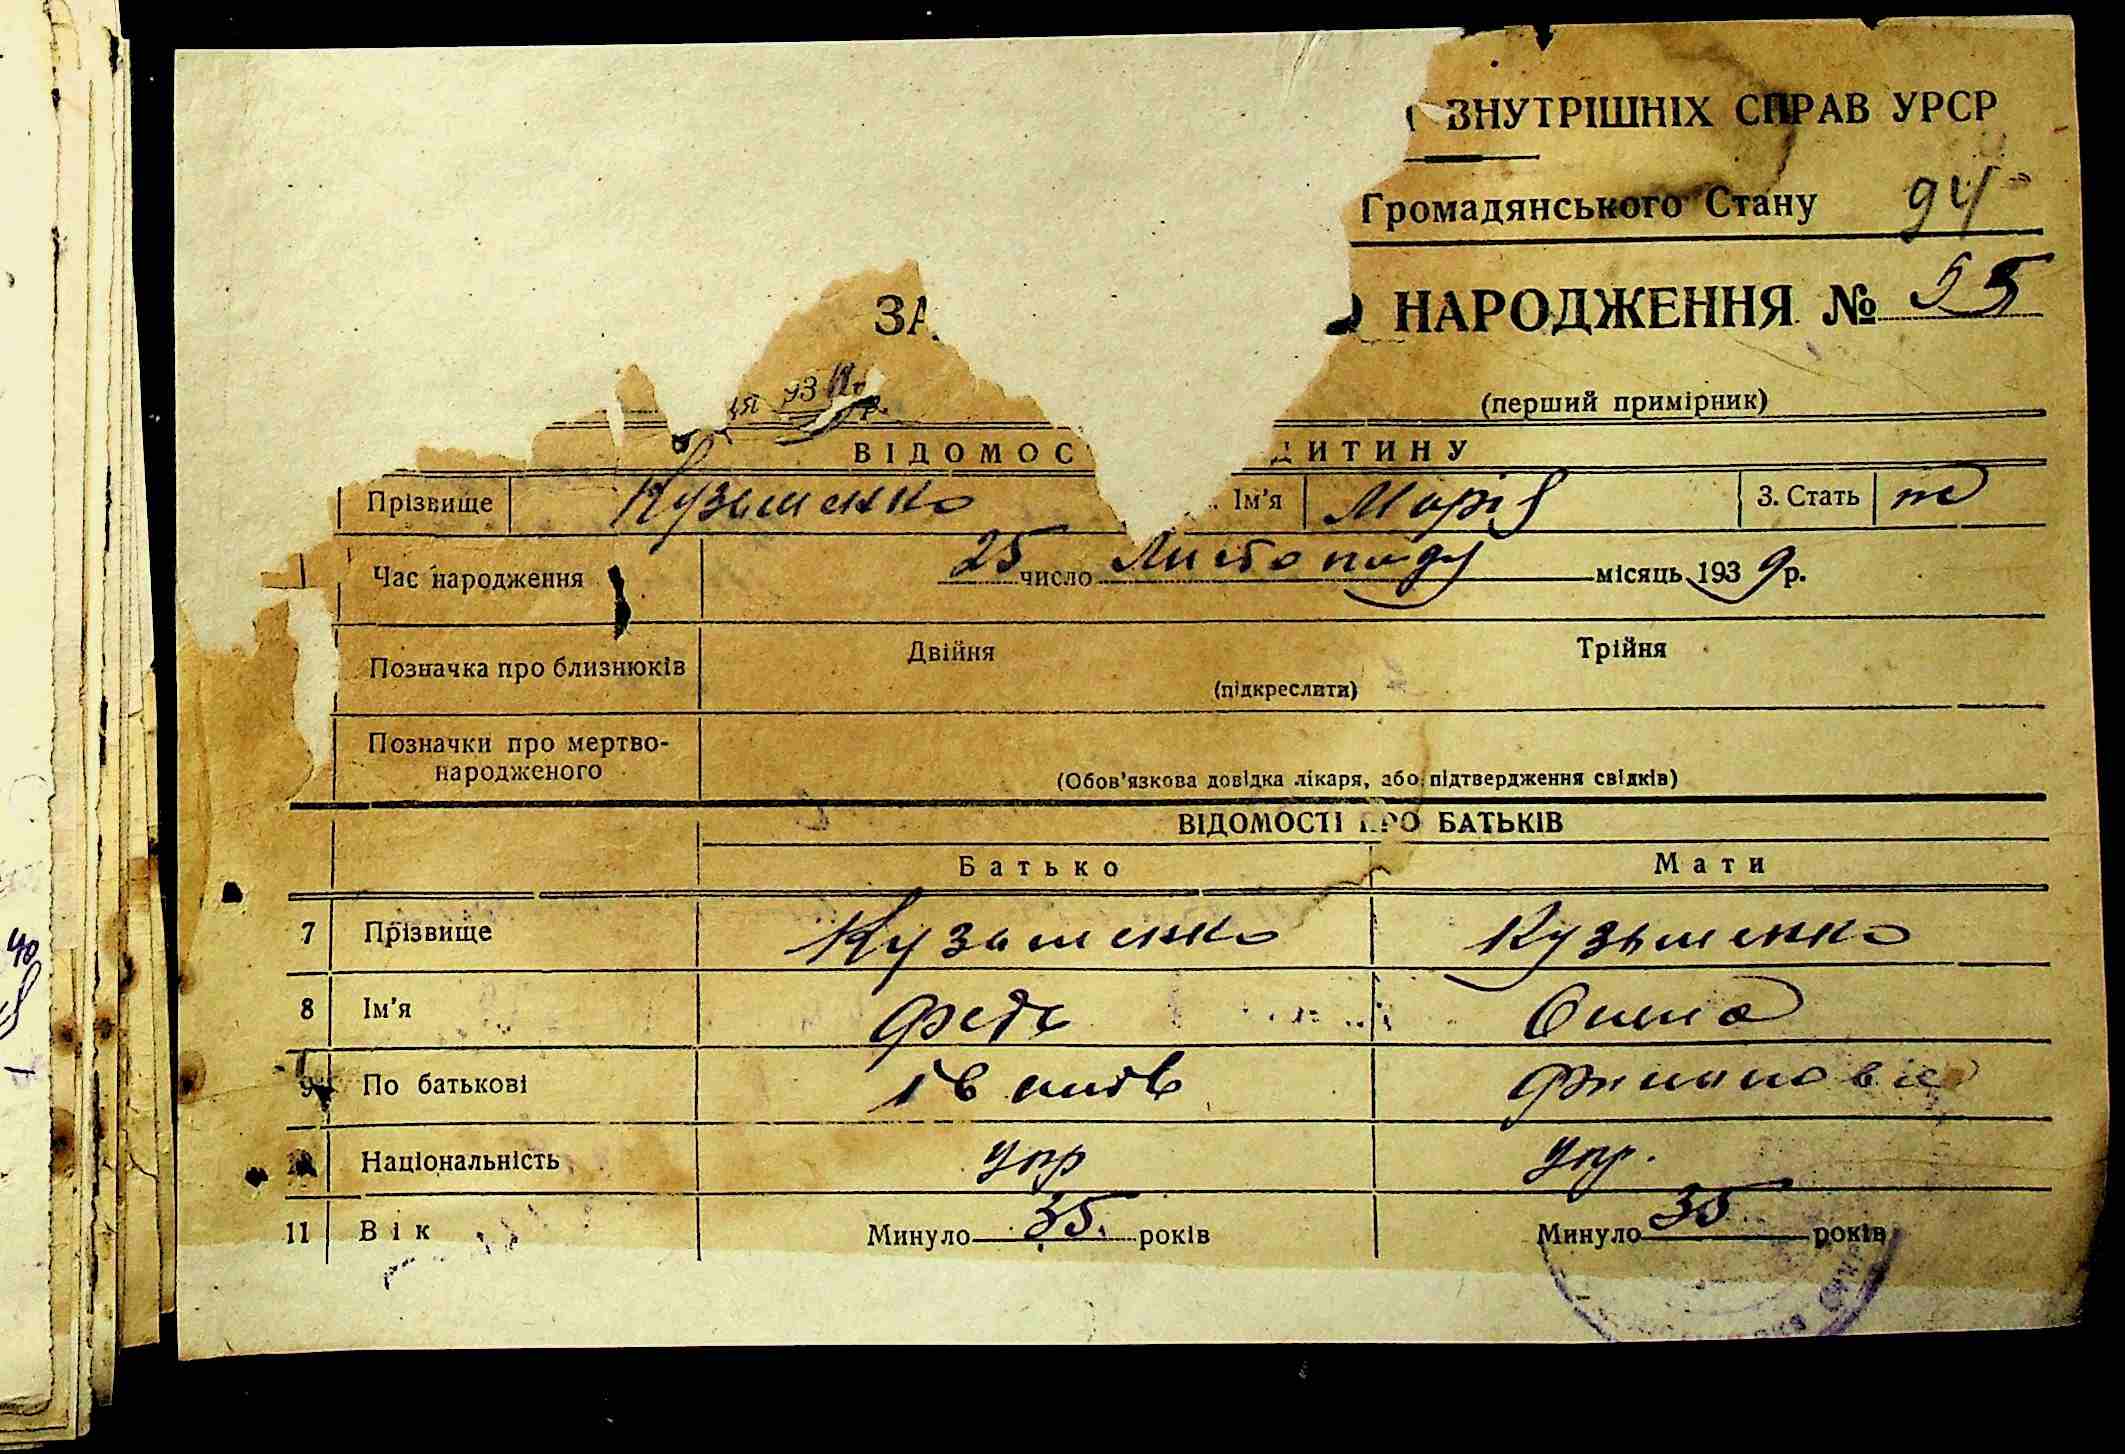 ВНУТРІШНІХ СПРАВ УРСР
Громадянського Стану 94
ЗА НАРОДЖЕННЯ № 55
ця 193 р.
(перший примірник)
ВІДОМОС ДИТИНУ
Прізвище Кузьменко Ім'я Марія 3. Стать ж
Час народження 25 число Листопаду місяць 1939 р.
Позначка про близнюків Двійня Трійня
(підкреслити)
Позначки про мертво-
народженого
(Обов'язкова довідка лікаря, або підтвердження свідків)
ВІДОМОСТІ ПРО БАТЬКІВ
Батько Мати
7 Прізвище Кузьменко Кузьменко
8 Ім'я
9 По батькові
Національність укр укр.
11 Вік Минуло 35 років Минуло 35 років